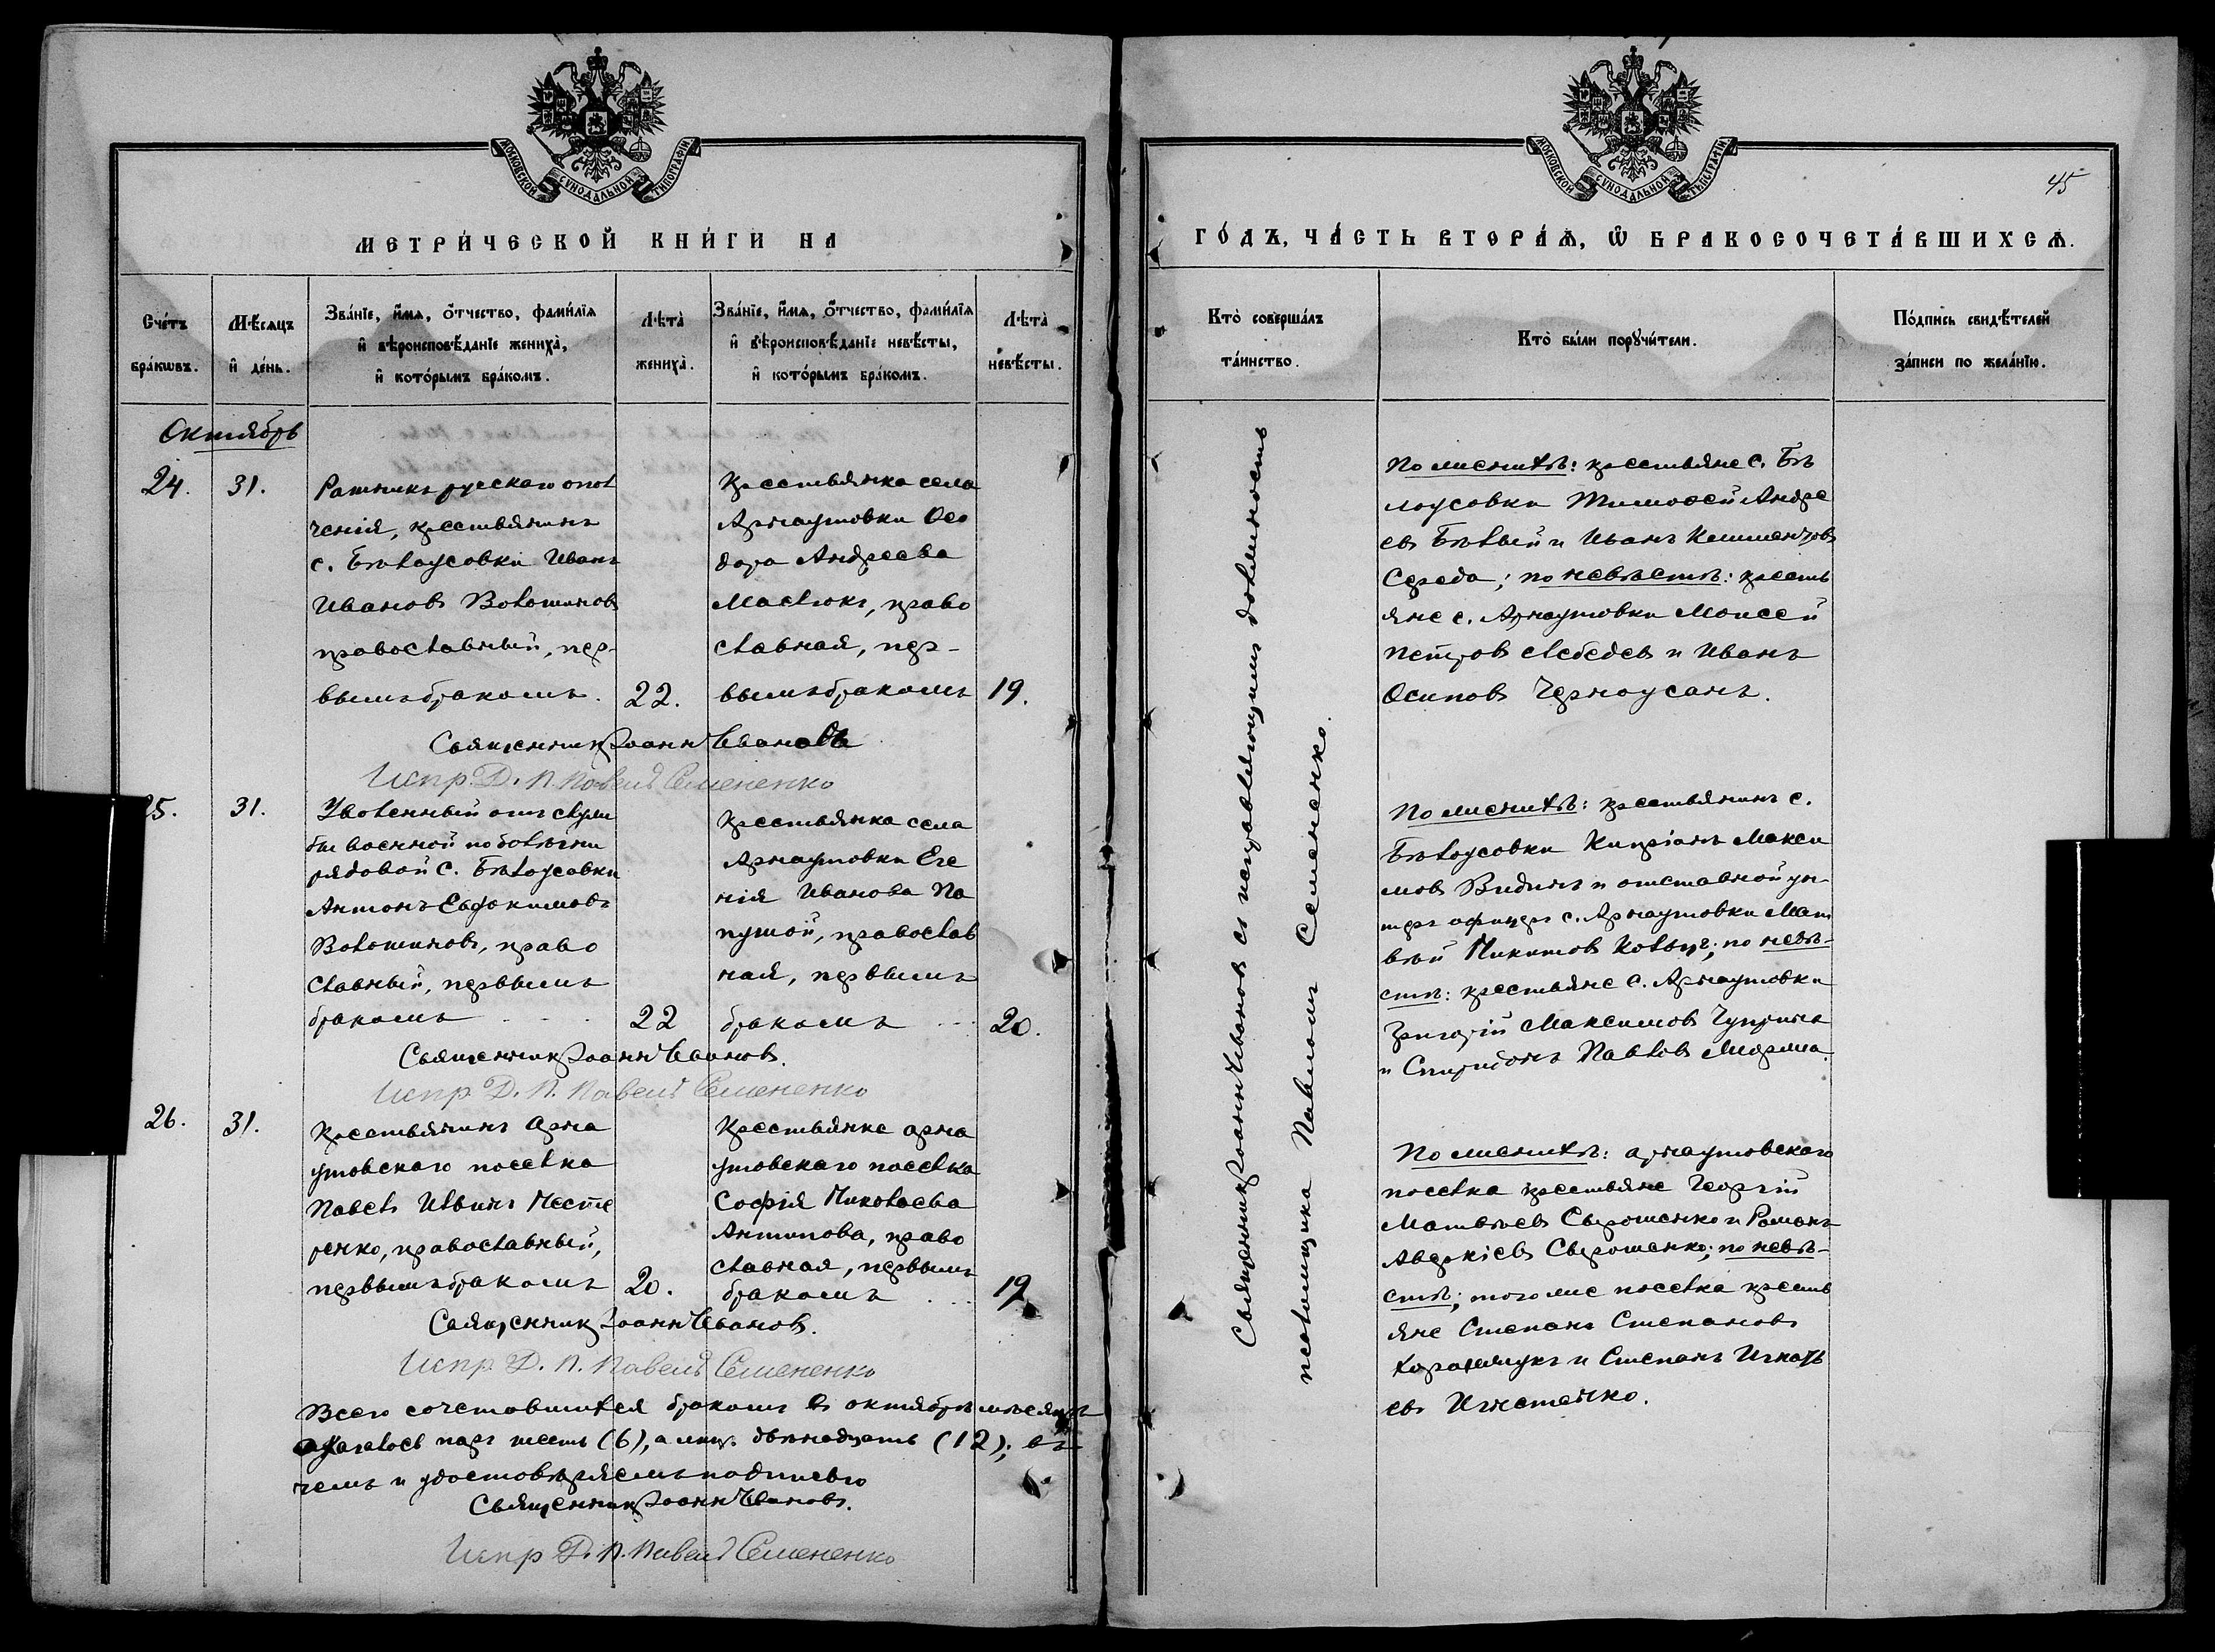 МОСКОВСКОЙ СѴНОДАЛЬНОЙ ТИПОГРАФІИ
МЕТРИ́ЧЕСКОЙ КНИ́ГИ НА
Сче́тъ бра́кѡвъ.
Мѣ́сяцъ и҆ де́нь.
Зва́нїе, и҆́мѧ, ѻ҆́тчество, фами́лїѧ
и҆ вѣроисповѣ́данїе жениха̀,
и҆ кото́рымъ бра́комъ.
Лѣта̀ жениха̀.
Зва́нїе, и҆́мѧ, ѻ҆́тчество, фами́лїѧ
и҆ вѣроисповѣ́данїе невѣ́сты,
и҆ кото́рымъ бра́комъ.
Лѣта̀ невѣ́сты.
Октябрь
24.
31.
Ратникъ русскаго опол
ченія, крестьянинъ
с. Бѣлоусовки Иванъ
Ивановъ Волошиновъ
православный, пер-
вымъ бракомъ.
22.
Крестьянка села
Арнаутовки Ѳео
дора Андреева
Маслюкъ, право
славная, пер-
вымъ бракомъ
19.
Священникъ Іоаннъ Ивановъ
Испр. Д. П. Павелъ Семененко
25.
31.
Уволенный отъ служ
бы военной по болѣзни
рядовой с. Бѣлоусовки
Антонъ Евдокимовъ
Волошиновъ, право
славный, первымъ
бракомъ
22
Крестьянка села
Арнаутовки Еве
нія Иванова Ла
пушой, православ
ная, первымъ
бракомъ
20.
Священникъ Іоаннъ Ивановъ.
Испр. Д. П. Павелъ Семененко
26.
31.
Крестьянинъ арна
утовскаго поселка
Павелъ Ильинъ Несте
ренко, православный,
первымъ бракомъ
20.
Крестьянка арна
утовскаго поселка
Софія Николаева
Антипова, право
славная, первымъ
бракомъ
19
Священникъ Іоаннъ Ивановъ.
Испр. Д. П. Павелъ Семененко
Всего сочетавшихся бракомъ въ октябрѣ мѣсяцѣ
оказалось паръ шесть (6), а лицъ двѣнадцать (12); въ
чемъ и удостовѣряемъ подписью
Священникъ Іоаннъ Ивановъ.
Испр. Д. П. Павелъ Семененко
МОСКОВСКОЙ СѴНОДАЛЬНОЙ ТИПОГРАФІИ
45
ГО́ДЪ, ЧА́СТЬ ВТОРА́Ѧ, Ѽ БРАКОСОЧЕТА́ВШИХСѦ.
Кто̀ соверша́лъ
та́инство.
Кто̀ бы́ли порꙋчи́тели.
По́дпись свидѣ́телей
за́писи по жела́нїю.
Священникъ Іоаннъ Ивановъ съ исправляющимъ должность
псаломщика Павломъ Семененко.
По женихѣ: крестьяне с. Бѣ
лоусовки Тимоѳей Андре
евъ Бѣлый и Иванъ Климентовъ
Середа; по невѣстѣ: кресть
яне с. Арнаутовки Моисей
Петровъ Лебедевъ и Иванъ
Осиповъ Черноусанъ.
По женихѣ: крестьянинъ с.
Бѣлоусовки Кипріанъ Макси
мовъ Видинъ и отставной ун-
теръ офицеръ с. Арнаутовки Мат
вѣй Никитовъ Ковтунъ; по невѣ-
стѣ: крестьяне с. Арнаутовки
Григорій Максимовъ Чупринъ
и Спиридонъ Павловъ
По женихѣ: арнаутовскаго
поселка крестьяне Георгій
Матвѣевъ Сѣрошенко и Романъ
Авдокіевъ Сѣрошенко; по невѣ-
стѣ: того же поселка кресть
яне Степанъ Степановъ
и Степанъ Игнать
евъ Игнатенко.